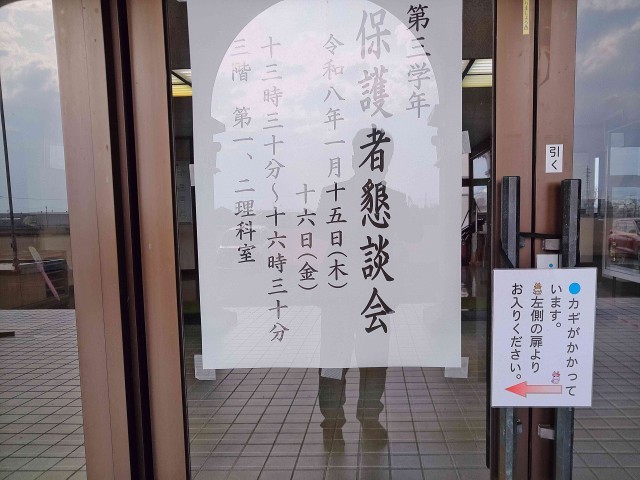 第三学年
保護者懇談会
令和八年一月十五日(木)
十六日(金)
十三時三十分～十六時三十分
三階 第一、二理科室
引く
●カギがかかって
います。
左側の扉より
お入りください。